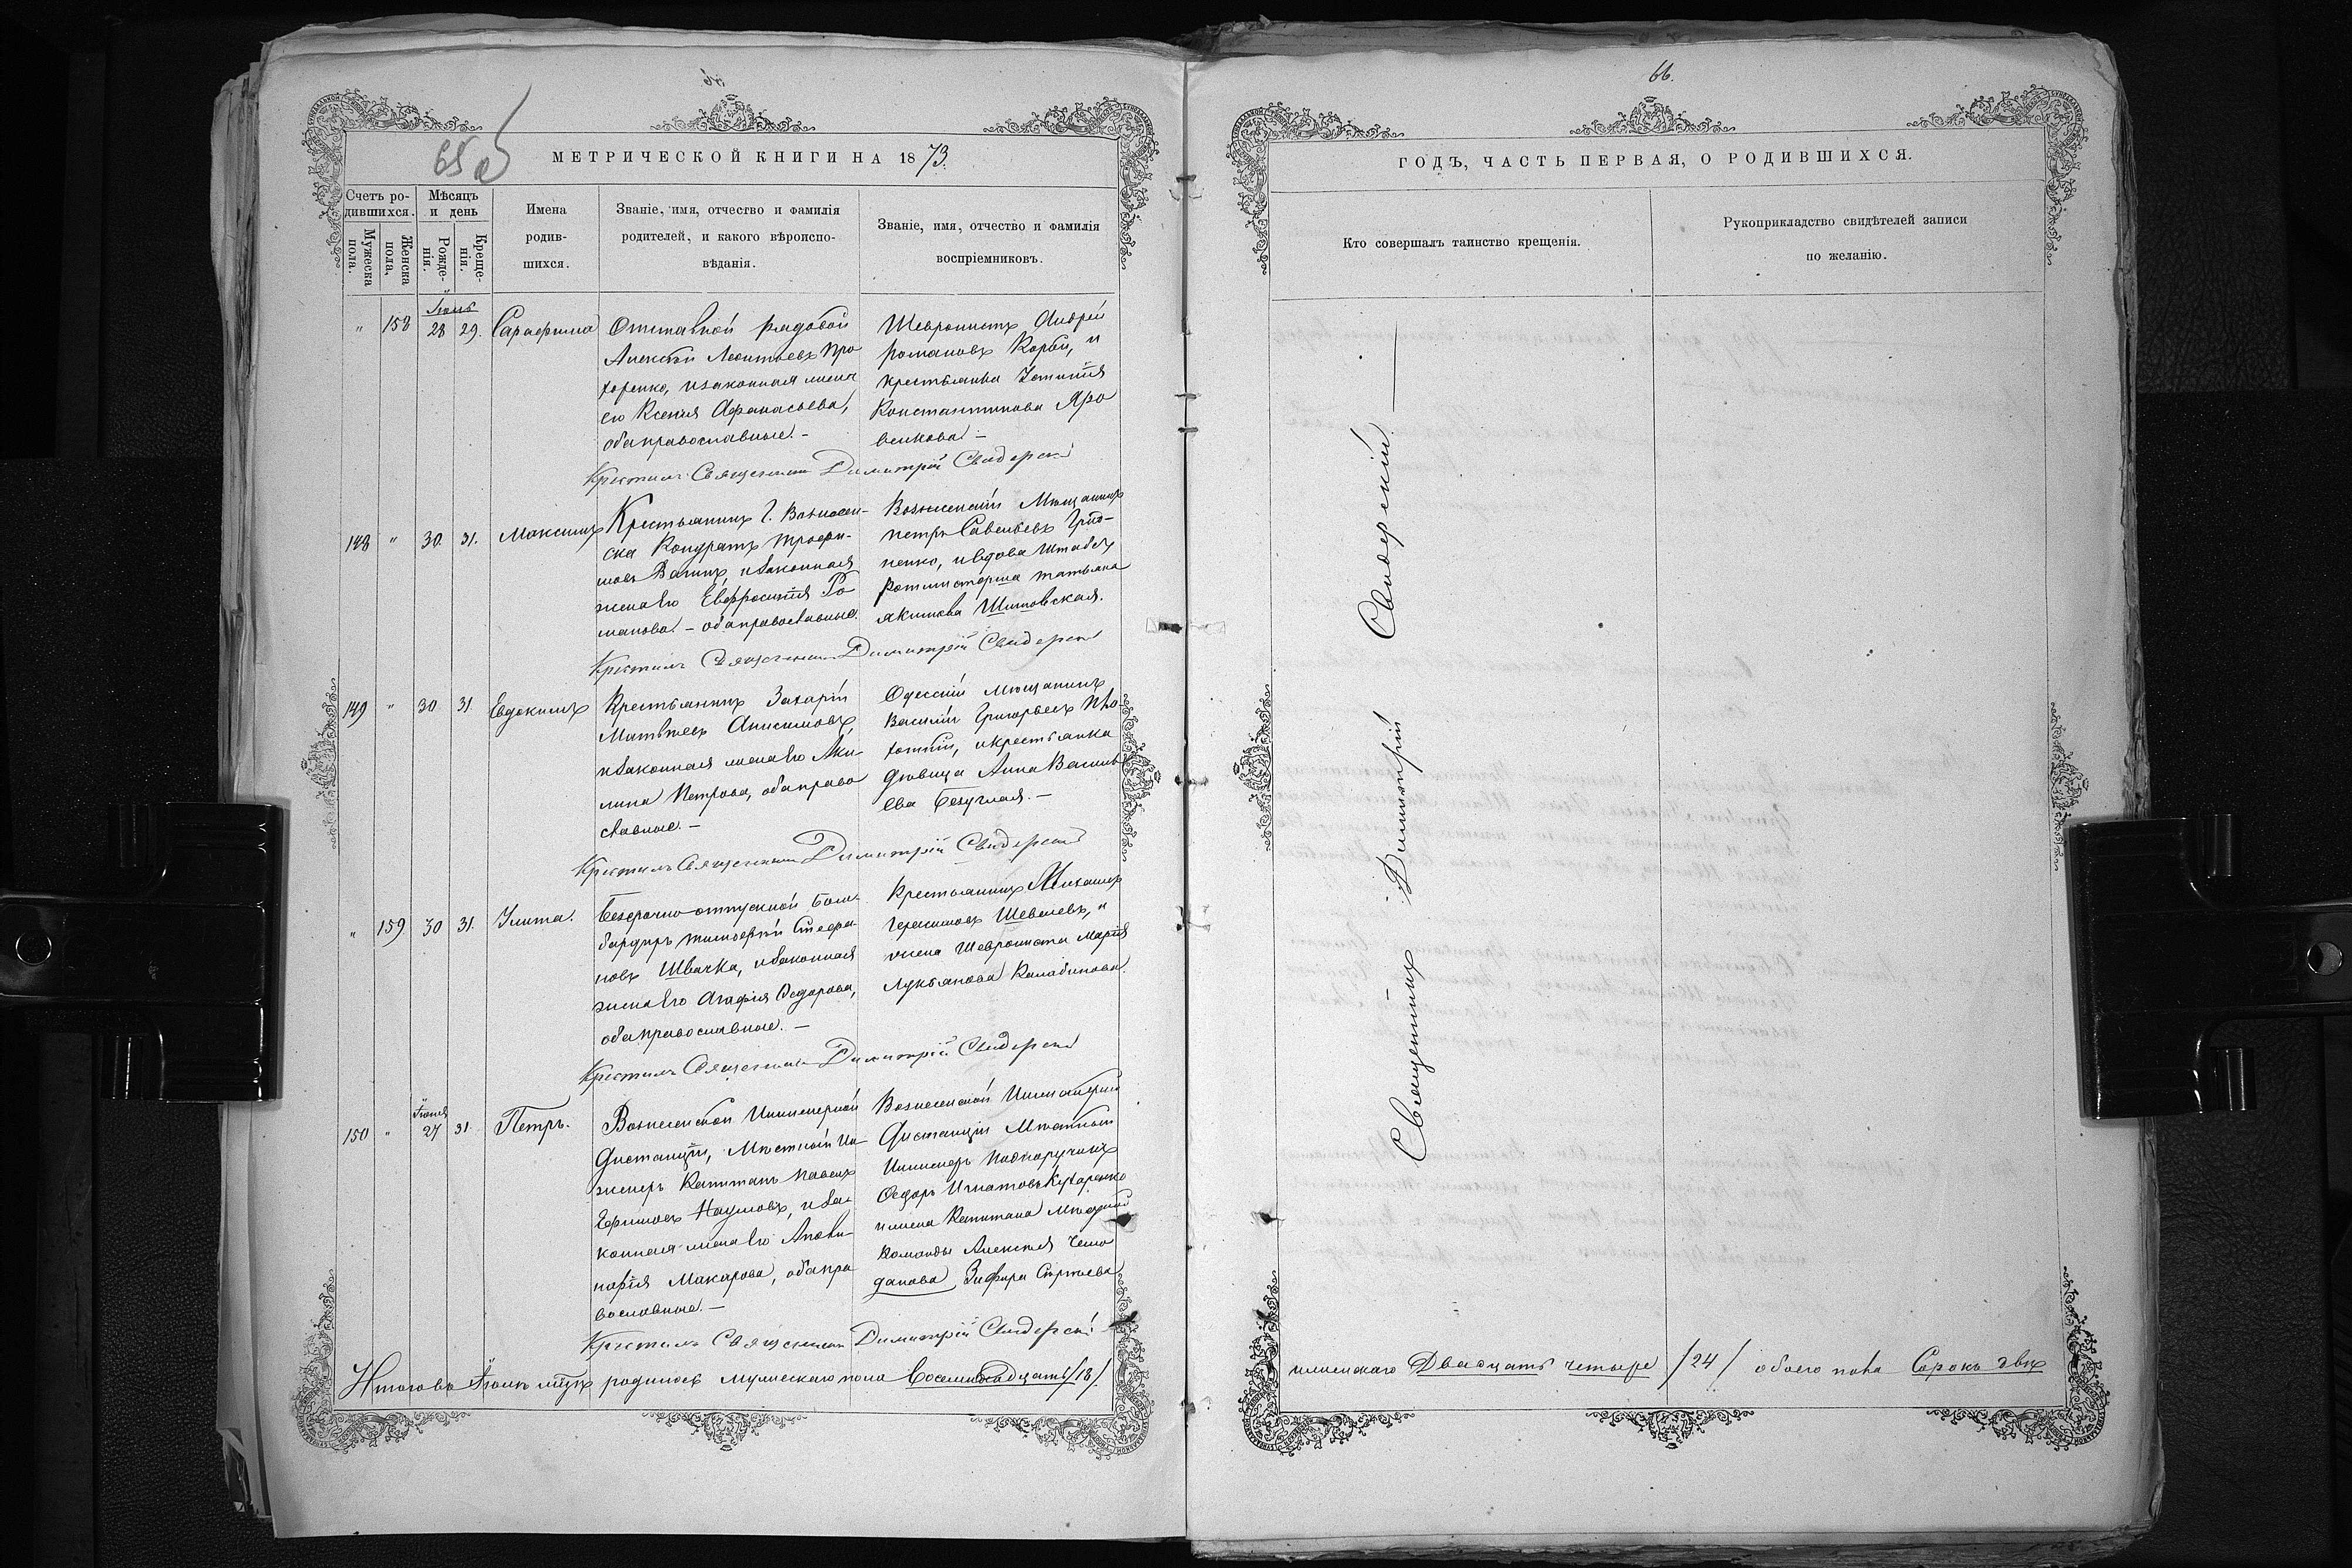 65 об
МЕТРИЧЕСКОЙ КНИГИ НА 1873.
Счетъ ро-
дившихся.
Мужеска пола.
Женска пола,
Мѣсяцъ и день
Рожде-
нія.
Креще-
нія.
Имена
родив-
шихся.
Званіе, имя, отчество и фамилія
родителей, и какого вѣроиспо-
вѣданія.
Званіе, имя, отчество и фамилія
воспріемниковъ.
Іюль
" 158 28 29. Сарафима
Отставной рядовой
Алексѣй Леонтьевъ Про
хоренко, изаконная жена
его Ксенія Афанасьева,
оба православные. –
Шевронистъ Андрей
Романовъ Корби, и
крестьянка Устинія
Константинова Яро
венкова. –
Крестилъ Священникъ Димитрій Свидерскій
148 " 30. 31. Максимъ
Крестьянинъ г. Вознесен-
ска Кондратъ Трофи-
мовъ Вагинъ, изаконная
жена его Евфросинія Ро
манова. – оба православные.
Вознесенскій Мѣщанинъ
Петръ Савельевъ Грид-
ненко, и вдова Штабсъ
Ротмистерша Татьяна
Якимова Шимовская.
Крестилъ Священникъ Димитрій Свидерскій
149 " 30 31. Евдокимъ
Крестьянинъ Захарій
Матвѣевъ Анисимовъ
изаконная жена его Аки-
лина Петрова, оба право
славные. –
Одесскій мѣщанинъ
Василій Григорьевъ
и крестьянка
дѣвица Анна Василь
ева Безуглая. –
Крестилъ Священникъ Димитрій Свидерскій
" 159. 30 31. Улита.
Безсрочно-отпускной Бом-
бардиръ Тимофей Стефа-
новъ Швачка, изаконная
жена его Агафія Ѳедорова,
оба православные. –
Крестьянинъ Михаилъ
Герасимовъ Шевелевъ, и
жена Шеврониста Марія
Лукьянова Калабинова.
Крестилъ Священникъ Димитрій Свидерскій
Іюня
150 " 27 31. Петръ.
Вознесенской Инженерной
Дистанціи, Мѣстный Ин-
женеръ Капитанъ Павелъ
Ефимовъ Наумовъ, изак-
конная жена его Аполи-
нарія Макарова, оба пра
вославные. –
Вознесенской Инженерной
Дистанціи Мѣстный
Инженеръ Подпоручикъ
Ѳедоръ Игнатовъ Кухаренко
и жена Капитана Мѣстной
Команды Алексѣя Чемо
данова, Зефира Сергѣева
Крестилъ Священникъ Димитрій Свидерскій
Итого въ Іюлѣ мѣцѣ родилось мужескаго пола Восемнадцать /18/.
66.
ГОДЪ, ЧАСТЬ ПЕРВАЯ, О РОДИВШИХСЯ.
Кто совершалъ таинство крещенія.
Рукоприкладство свидѣтелей записи
по желанію.
Священникъ Димитрій Свидерскій
женскаго Двадцать четыре /24/ обоего пола Сорокъ два